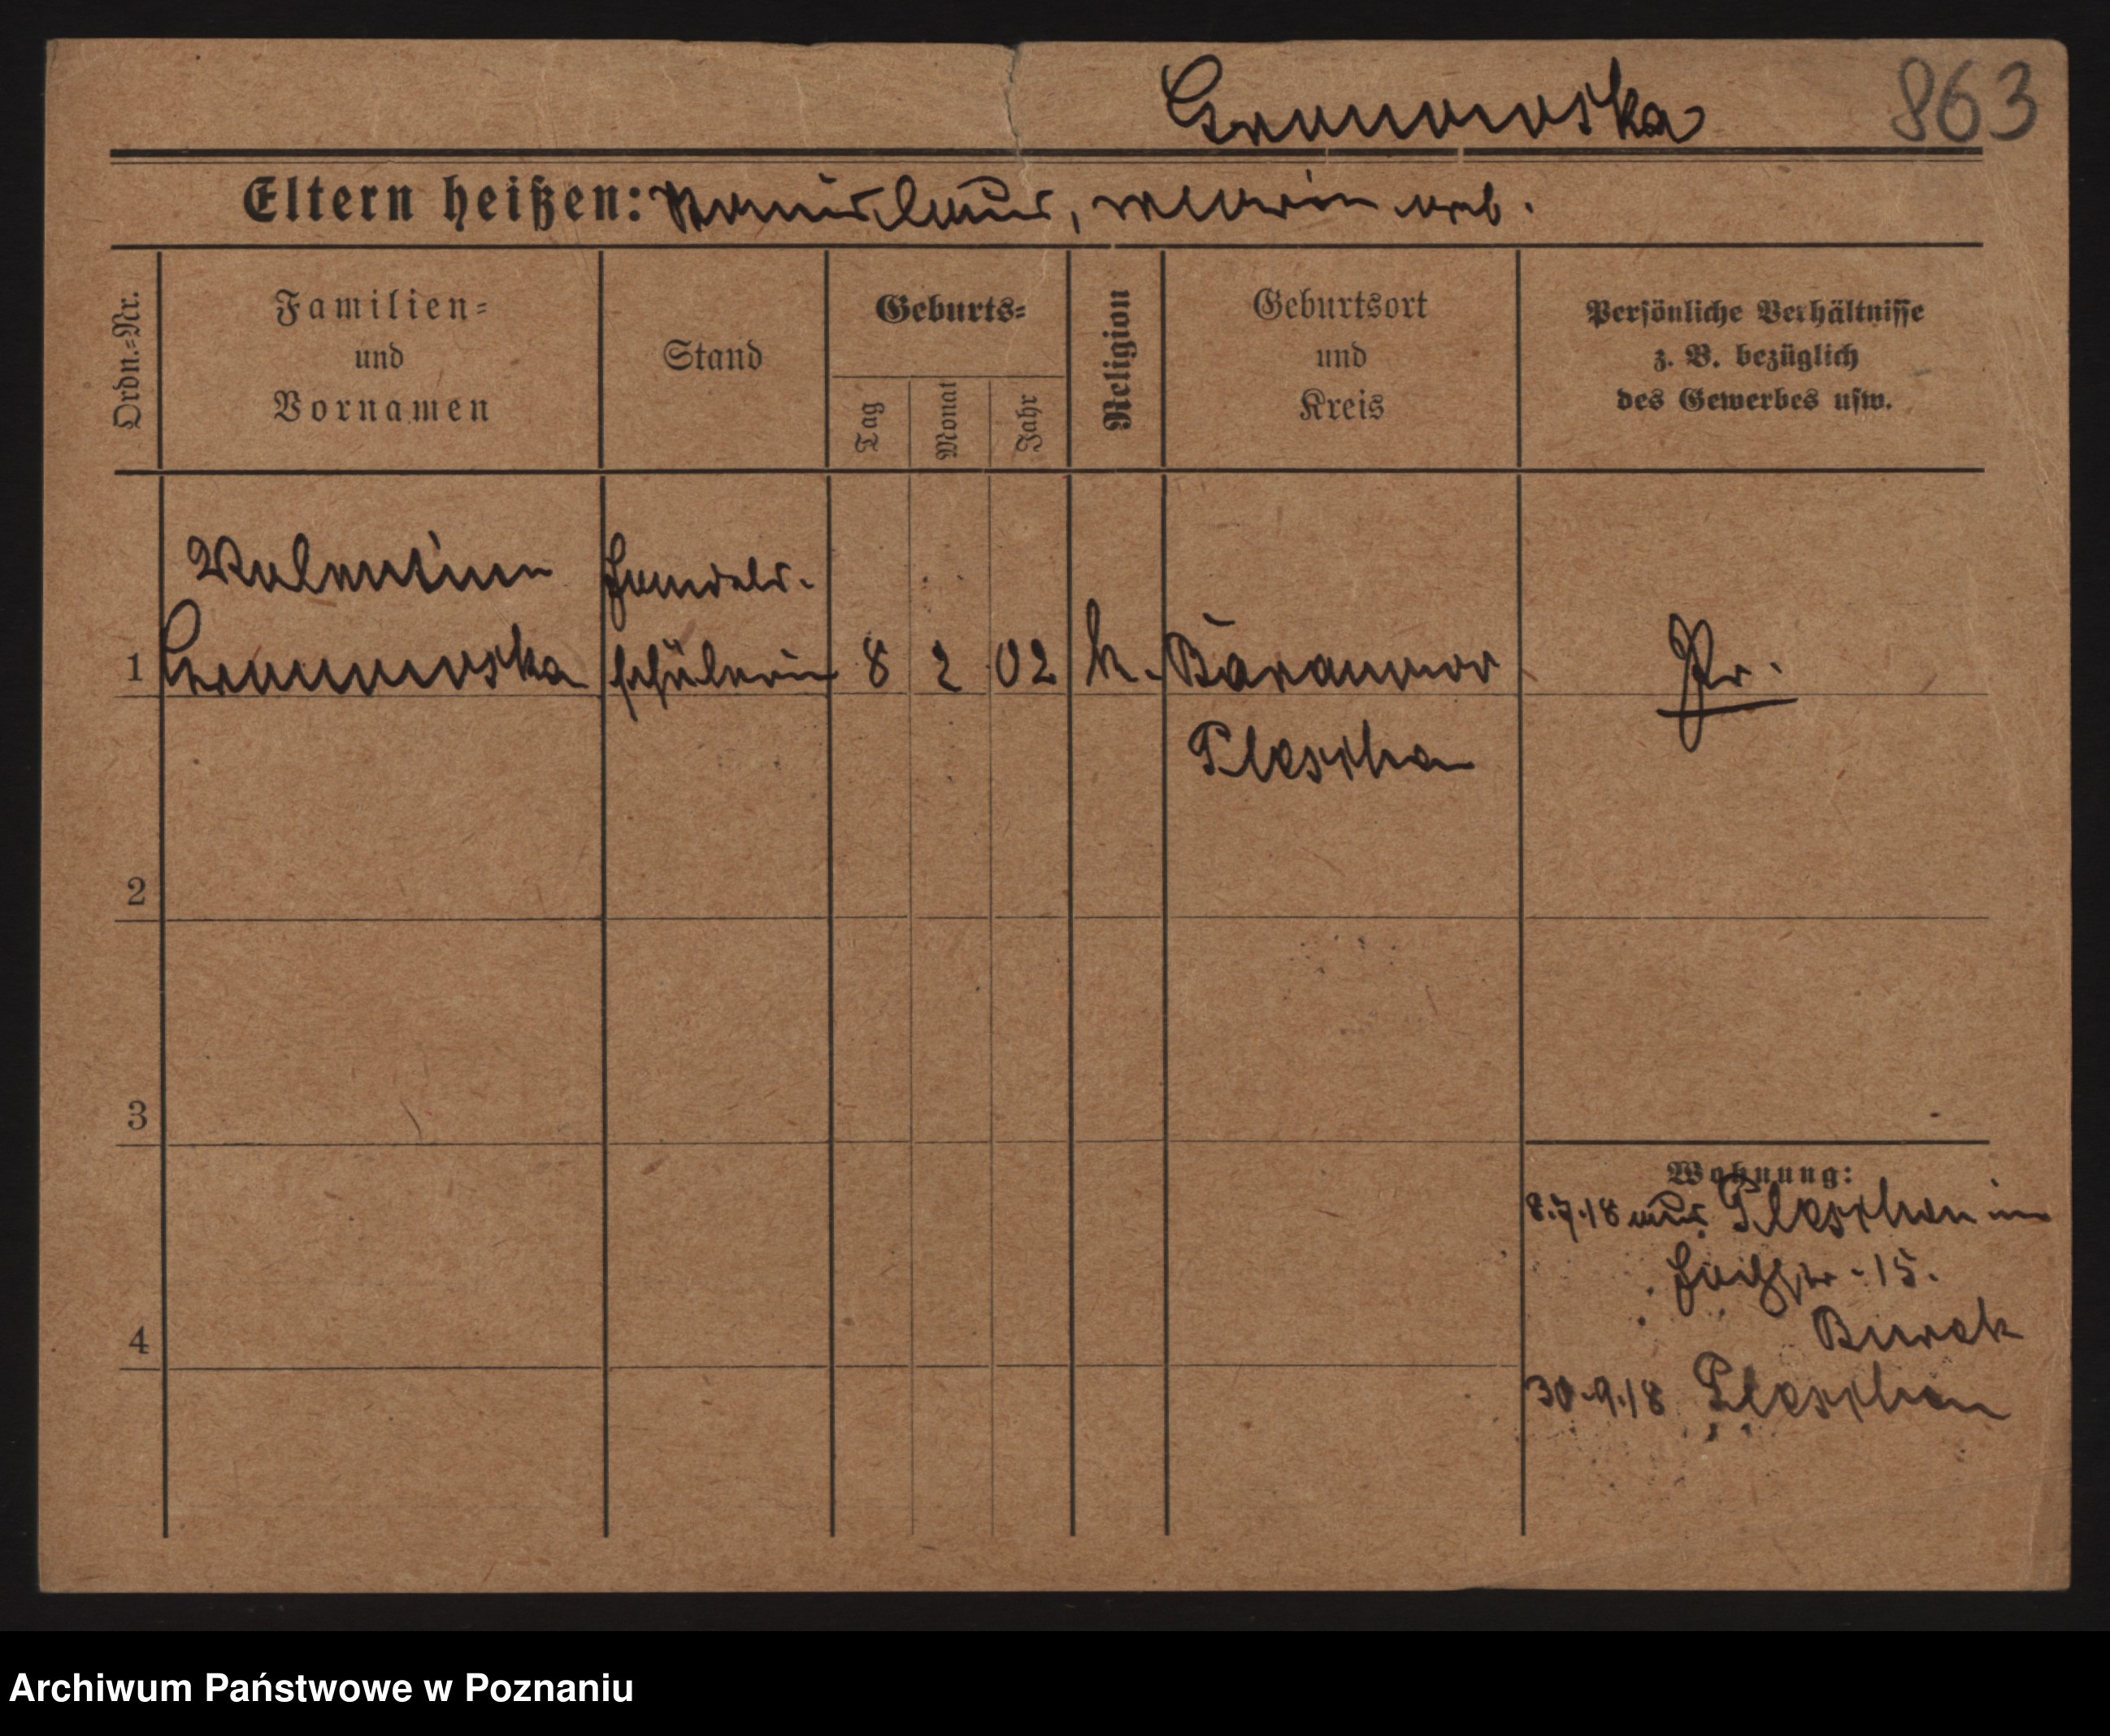 Gronowska 863
Eltern heißen: Stanislaus, geb.
Ordn.=Nr.
Familien=
und
Vornamen
Stand
Geburts=
Tag
Monat
Jahr
Religion
Geburtsort
und
Kreis
Persönliche Verhältnisse
z. B. bezüglich
des Gewerbes usw.
Valentine Handels-
1 Gronowska schülerin 8 2 02 k. Baranowo Pr.
Pleschen
2
3
4
Wohnung:
8.7.18 aus Pleschen
15.
Burek
30.9.18 Pleschen
Archiwum Państwowe w Poznaniu